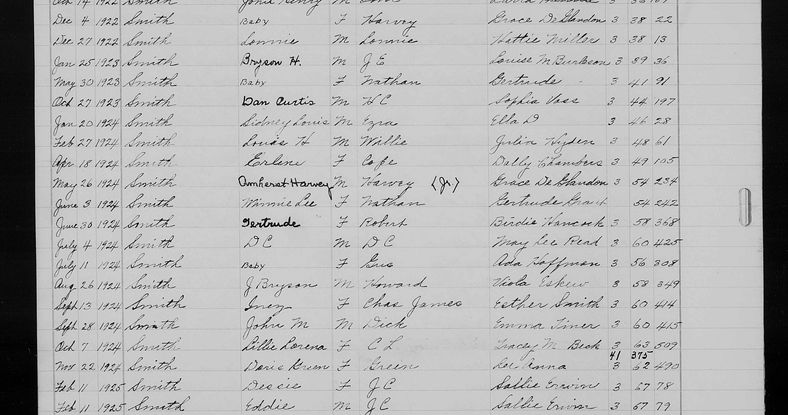 Oct 14 1922 Smith John Henry M 3 36 107
Dec 4 1922 Smith Baby F Harvey Grace De Glandon 3 38 22
Dec 27 1922 Smith Lonnie M Lonnie Hattie Miller 3 38 13
Jan 25 1923 Smith Bryson H. M J E Louise M Burleson 3 39 36
May 30 1923 Smith Baby F Nathan Gertrude - 3 41 91
Oct 27 1923 Smith Dan Curtis M H C Sophia Voss 3 44 197
Jan 20 1924 Smith Sidney Louis M Ezra Ella D 3 46 28
Feb 27 1924 Smith Louis H M Willie Julia 3 48 61
Apr 18 1924 Smith Erlene F Cope Dally Chambers 3 49 105
May 26 1924 Smith Amherst Harvey M Harvey (Jr) Grace De Glandon 3 54 234
June 3 1924 Smith Winnie Lee F Nathan Gertrude Grant 54 242
June 30 1924 Smith Gertrude F Robert Birdie Hancock 3 58 368
July 4 1924 Smith D C M D C May Lee Read 3 60 425
July 11 1924 Smith Baby F Eric Ada Hoffman 3 56 308
Aug 26 1924 Smith J Bryson M Howard Viola Eskew 3 58 349
Sept 13 1924 Smith Inez F Chas James Esther Smith 3 60 414
Sept 28 1924 Smith John M M Dick Emma Tiner 3 60 415
Oct 7 1924 Smith Lillie Lorena F C L Tracey M Beck 3 63 509
41 375
Nov 22 1924 Smith Doris Green F Green Lee Anna 3 62 490
Feb 11 1925 Smith Dessie F J C Sallie Erwin 3 67 78
Feb 11 1925 Smith Eddie M J C Sallie Erwin 3 67 79